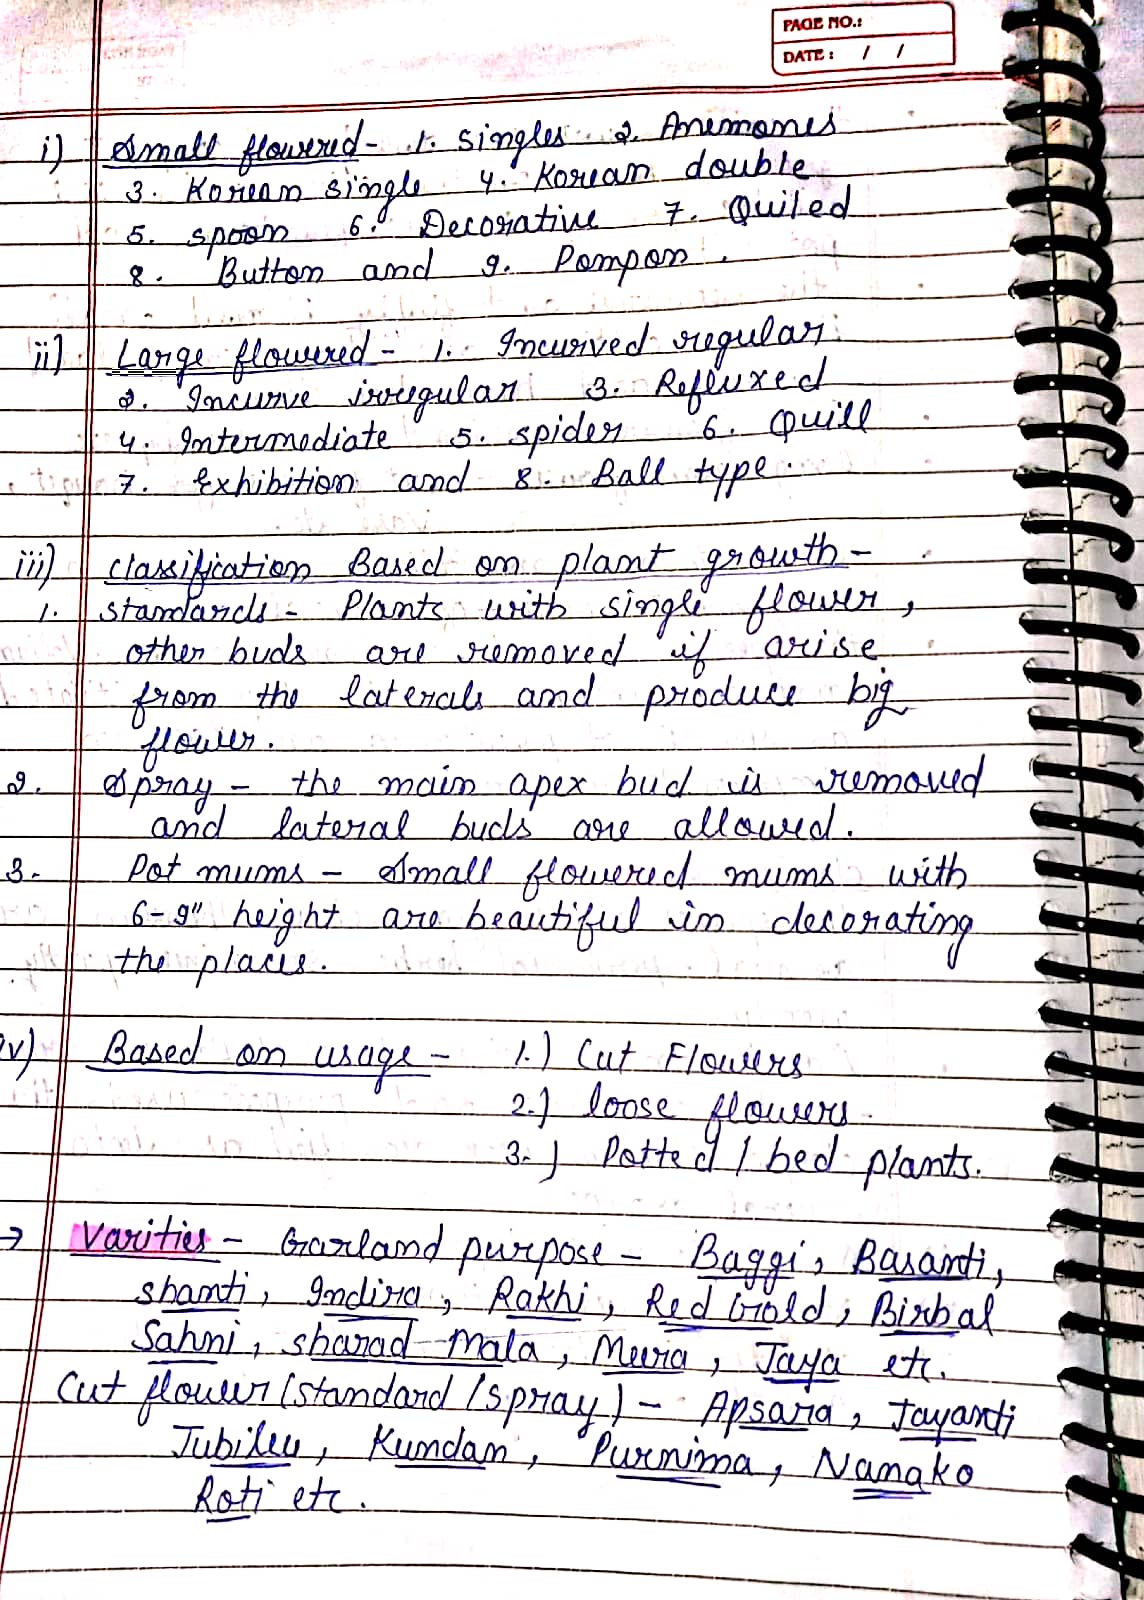 PAGE NO.:
DATE: / /
i) Small flowered- 1. Singles 2. Anemones
3. Korean single 4. Korean double
5. spoon 6. Decorative 7. Quiled
8. Button and 9. Pompon.
ii] Large flowered - 1. Incurved regular
2. Incurve irregular 3. Refluxed
4. Intermediate 5. spider 6. Quill
7. Exhibition and 8. Ball type.
iii) classification Based on plant growth-
1. standards - Plants with single flower,
other buds are removed if arise
from the laterals and produce big
flower.
2. Spray - the main apex bud is removed
and lateral buds are allowed.
3. Pot mums - Small flowered mums with
6-9" height are beautiful in decorating
the places.
iv) Based on usage - 1.) Cut Flowers
2.) loose flowers.
3.) Potted / bed plants.
→ Varities - Garland purpose - Baggi, Basanti,
shanti, Indira, Rakhi, Red Gold, Birbal
Sahni, sharad Mala, Meera, Jaya etc.
Cut flower (standard/spray) - Apsara, Jayanti
Jubilee, Kundan, Purnima, Nanako
Roti etc.